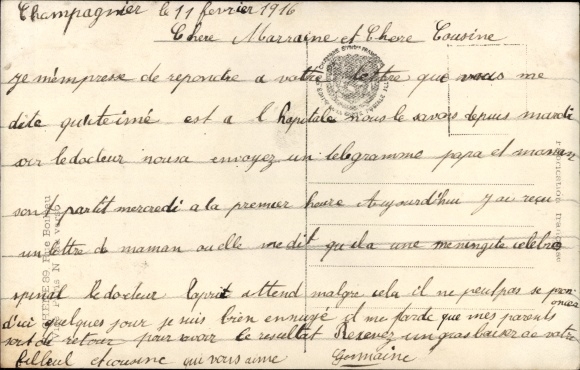 Champagnier le 11 fevrier 1916
Chere Marraine et Chere Cousine
je m'empresse de repondre a votre lettre que vous me
dite qu'eteimé est a l hopitale nous le savons depuis mardi
soir le docteur nousa envoyez un telegramme papa et maman
sont partit mercredi a la premier heure Aujourd'hui j ai reçu
un lettre de maman ou elle me dit qu'il a une meningite celebro
spinal le docteur attend malgre cela il ne peut pas se pron
oncer
d'ici quelques jour je suis bien ennuyé il me tarde que mes parents
sort de retour pour savoir le resultat Recevez un gros baiser de votre
filleul et cousine qui vous aime Germaine
Fabrication française